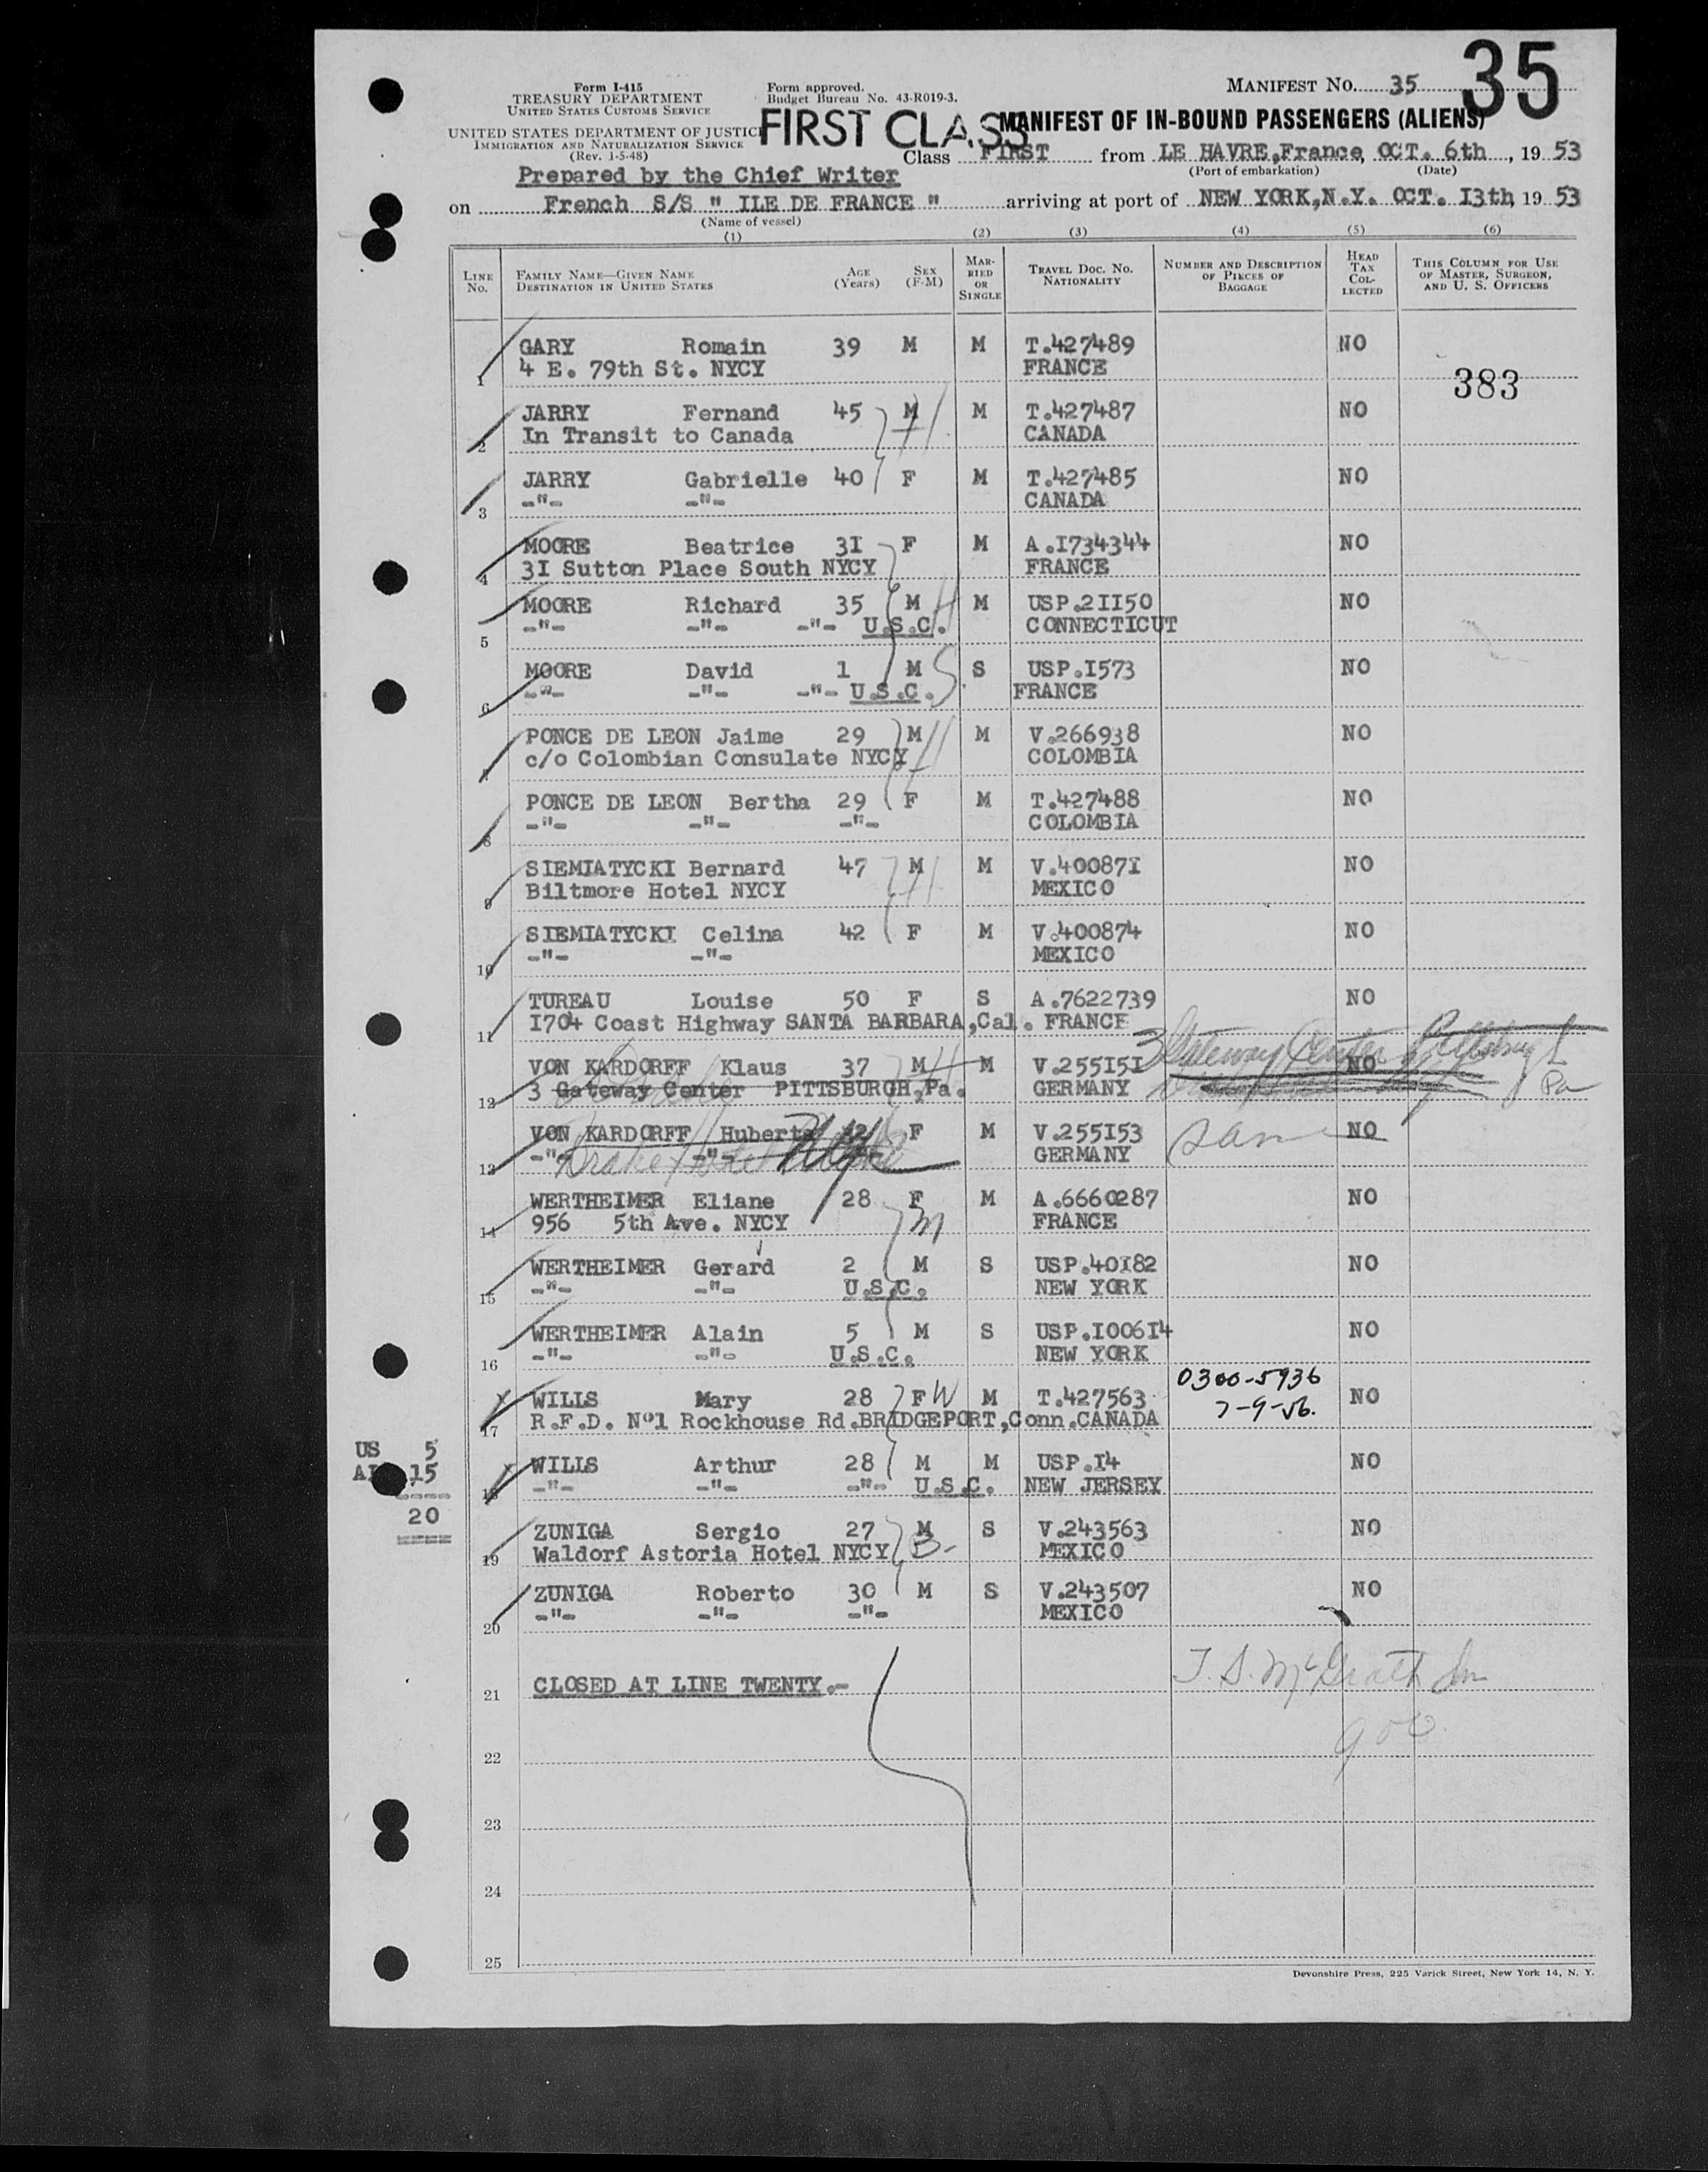 35
Form I-415
TREASURY DEPARTMENT
UNITED STATES CUSTOMS SERVICE
UNITED STATES DEPARTMENT OF JUSTICE
IMMIGRATION AND NATURALIZATION SERVICE
(Rev. 1-5-48)
Form approved.
Budget Bureau No. 43-R019-3.
MANIFEST NO. 35
FIRST CLASS
MANIFEST OF IN-BOUND PASSENGERS (ALIENS)
Class FIRST from LE HAVRE,France, OCT. 6th, 19 53
(Port of embarkation) (Date)
Prepared by the Chief Writer
on French S/S " ILE DE FRANCE " arriving at port of NEW YORK,N.Y. OCT. I3th, 19 53
(Name of vessel)
(1) (2) (3) (4) (5) (6)
LINE NO. FAMILY NAME—GIVEN NAME DESTINATION IN UNITED STATES AGE (Years) SEX (F-M) MARRIED OR SINGLE TRAVEL DOC. NO. NATIONALITY NUMBER AND DESCRIPTION OF PIECES OF BAGGAGE HEAD TAX COLLECTED THIS COLUMN FOR USE OF MASTER, SURGEON, AND U. S. OFFICERS
GARY Romain 39 M M T.427489 NO
1 4 E. 79th St. NYCY FRANCE
383
JARRY Fernand 45 M M T.427487 NO
2 In Transit to Canada CANADA
JARRY Gabrielle 40 F M T.427485 NO
3 -"- -"- CANADA
MOORE Beatrice 3I F M A.I734344 NO
4 3I Sutton Place South NYCY FRANCE
MOORE Richard 35 M M USP.2II50 NO
5 -"- -"- -"- U.S.C. CONNECTICUT
MOORE David 1 M S USP.I573 NO
6 -"- -"- -"- U.S.C. FRANCE
PONCE DE LEON Jaime 29 M M V.266938 NO
7 c/o Colombian Consulate NYCY COLOMBIA
PONCE DE LEON Bertha 29 F M T.427488 NO
8 -"- -"- -"- COLOMBIA
SIEMIATYCKI Bernard 47 M M V.40087I NO
9 Biltmore Hotel NYCY MEXICO
SIEMIATYCKI Celina 42 F M V.400874 NO
10 -"- -"- MEXICO
TUREAU Louise 50 F S A.7622739 NO
11 I704 Coast Highway SANTA BARBARA,Cal. FRANCE
3 Gateway Center Pittsburgh Pa
VON KARDORFF Klaus 37 M M V.255I5I NO
12 3 Gateway Center PITTSBURGH,Pa. GERMANY
VON KARDORFF Huberta F M V.255I53 same NO
13 -"- -"- Drake Hotel GERMANY
WERTHEIMER Eliane 28 F M A.6660287 NO
14 956 5th Ave. NYCY FRANCE
WERTHEIMER Gerard 2 M S USP.40I82 NO
15 -"- -"- U.S.C. NEW YORK
WERTHEIMER Alain 5 M S USP.I006I4 NO
16 -"- -"- U.S.C. NEW YORK
WILLS Mary 28 F W M T.427563 0300-5936 NO
7-9-56.
17 R.F.D. Nº1 Rockhouse Rd.BRIDGEPORT,Conn.CANADA
WILLS Arthur 28 M M USP.I4 NO
18 -"- -"- -"- U.S.C. NEW JERSEY
US 5
15
----
20
=====
ZUNIGA Sergio 27 M S V.243563 NO
19 Waldorf Astoria Hotel NYCY MEXICO
ZUNIGA Roberto 30 M S V.243507 NO
20 -"- -"- -"- MEXICO
21 CLOSED AT LINE TWENTY.-
22
23
24
25
Devonshire Press, 225 Varick Street, New York 14, N. Y.